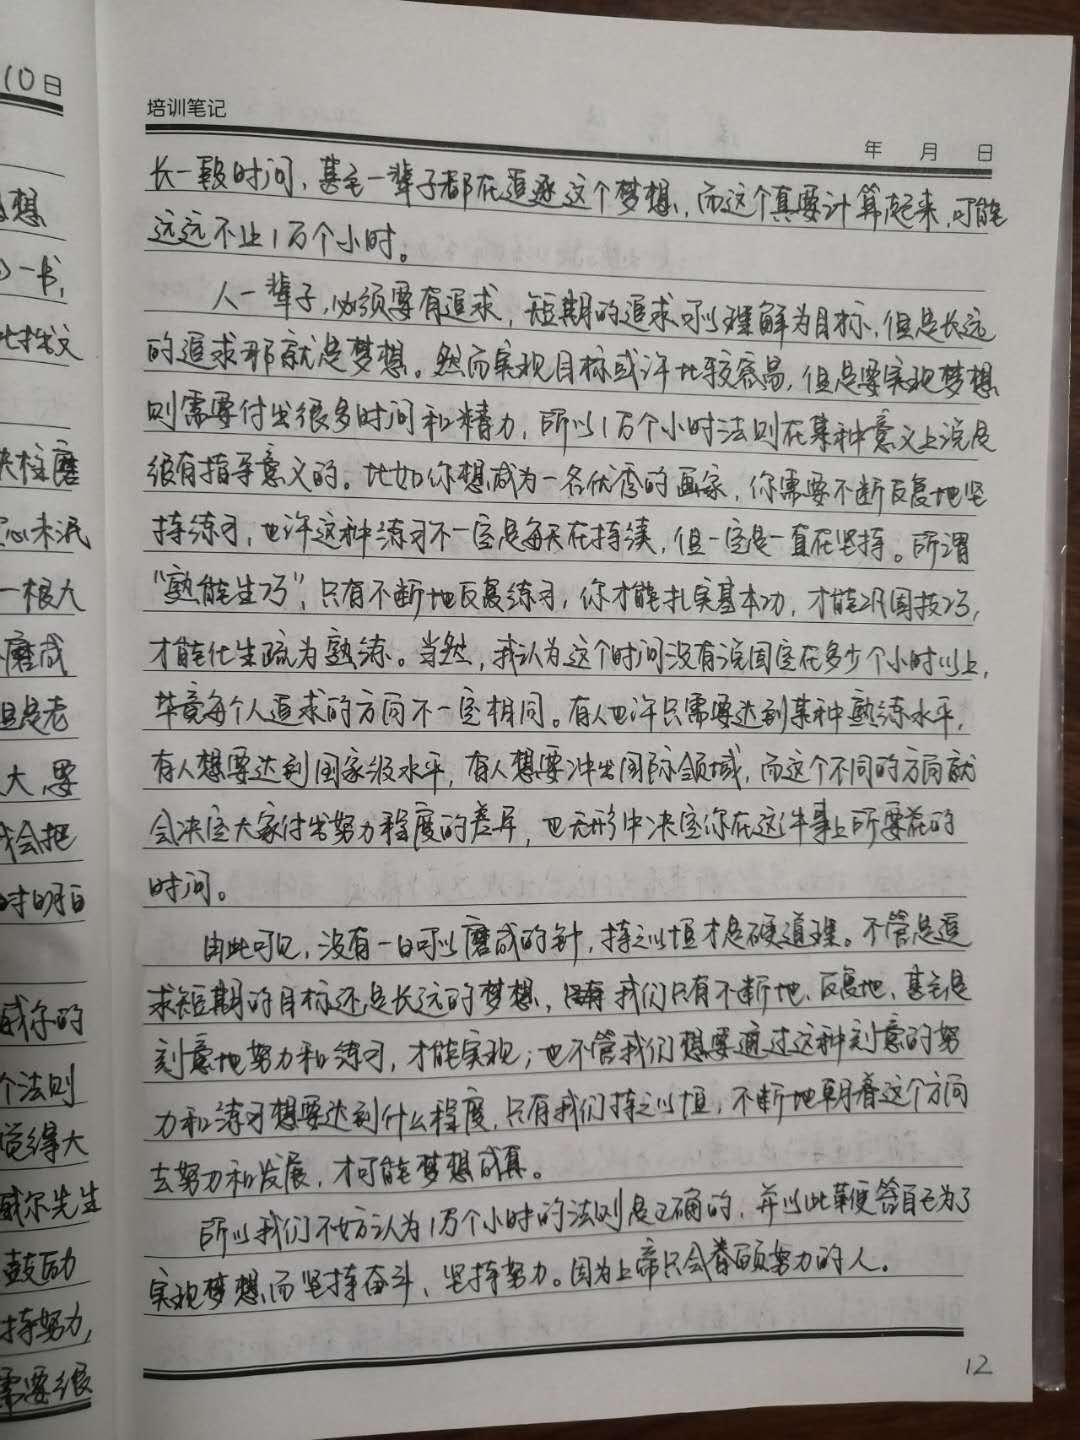 10日
想
一书,
此拙文
铁柱磨
心未泯
一根大
磨成
但是老
大,要
我会把
时明白
威尔的
个法则
觉得大
威尔先生
鼓励
持努力,
需要很
培训笔记
年 月 日
长一段时间,甚至一辈子都在追逐这个梦想,而这个真要计算起来,可能
远远不止1万个小时。
人一辈子,必须要有追求,短期的追求可以理解为目标,但是长远
的追求那就是梦想。然而实现目标或许比较容易,但是要实现梦想
则需要付出很多时间和精力,所以1万个小时法则在某种意义上说是
很有指导意义的。比如你想成为一名优秀的画家,你需要不断反复地坚
持练习,也许这种练习不一定是每天在持续,但一定是一直在坚持。所谓
“熟能生巧”,只有不断地反复练习,你才能扎实基本功,才能巩固技巧,
才能化生疏为熟练。当然,我认为这个时间没有说固定在多少个小时以上,
毕竟每个人追求的方向不一定相同。有人也许只需要达到某种熟练水平,
有人想要达到国家级水平,有人想要冲出国际领域,而这个不同的方向就
会决定大家付出努力程度的差异,也无形中决定你在这件事上所要花的
时间。
由此可见,没有一日可以磨成的针,持之以恒才是硬道理。不管是追
求短期的目标还是长远的梦想,我们只有不断地、反复地、甚至是
刻意地努力和练习,才能实现;也不管我们想要通过这种刻意的努
力和练习想要达到什么程度,只有我们持之以恒,不断地朝着这个方向
去努力和发展,才可能梦想成真。
所以我们不妨认为1万个小时的法则是正确的,并以此鞭笞自己为了
实现梦想而坚持奋斗、坚持努力。因为上帝只会眷顾努力的人。
12